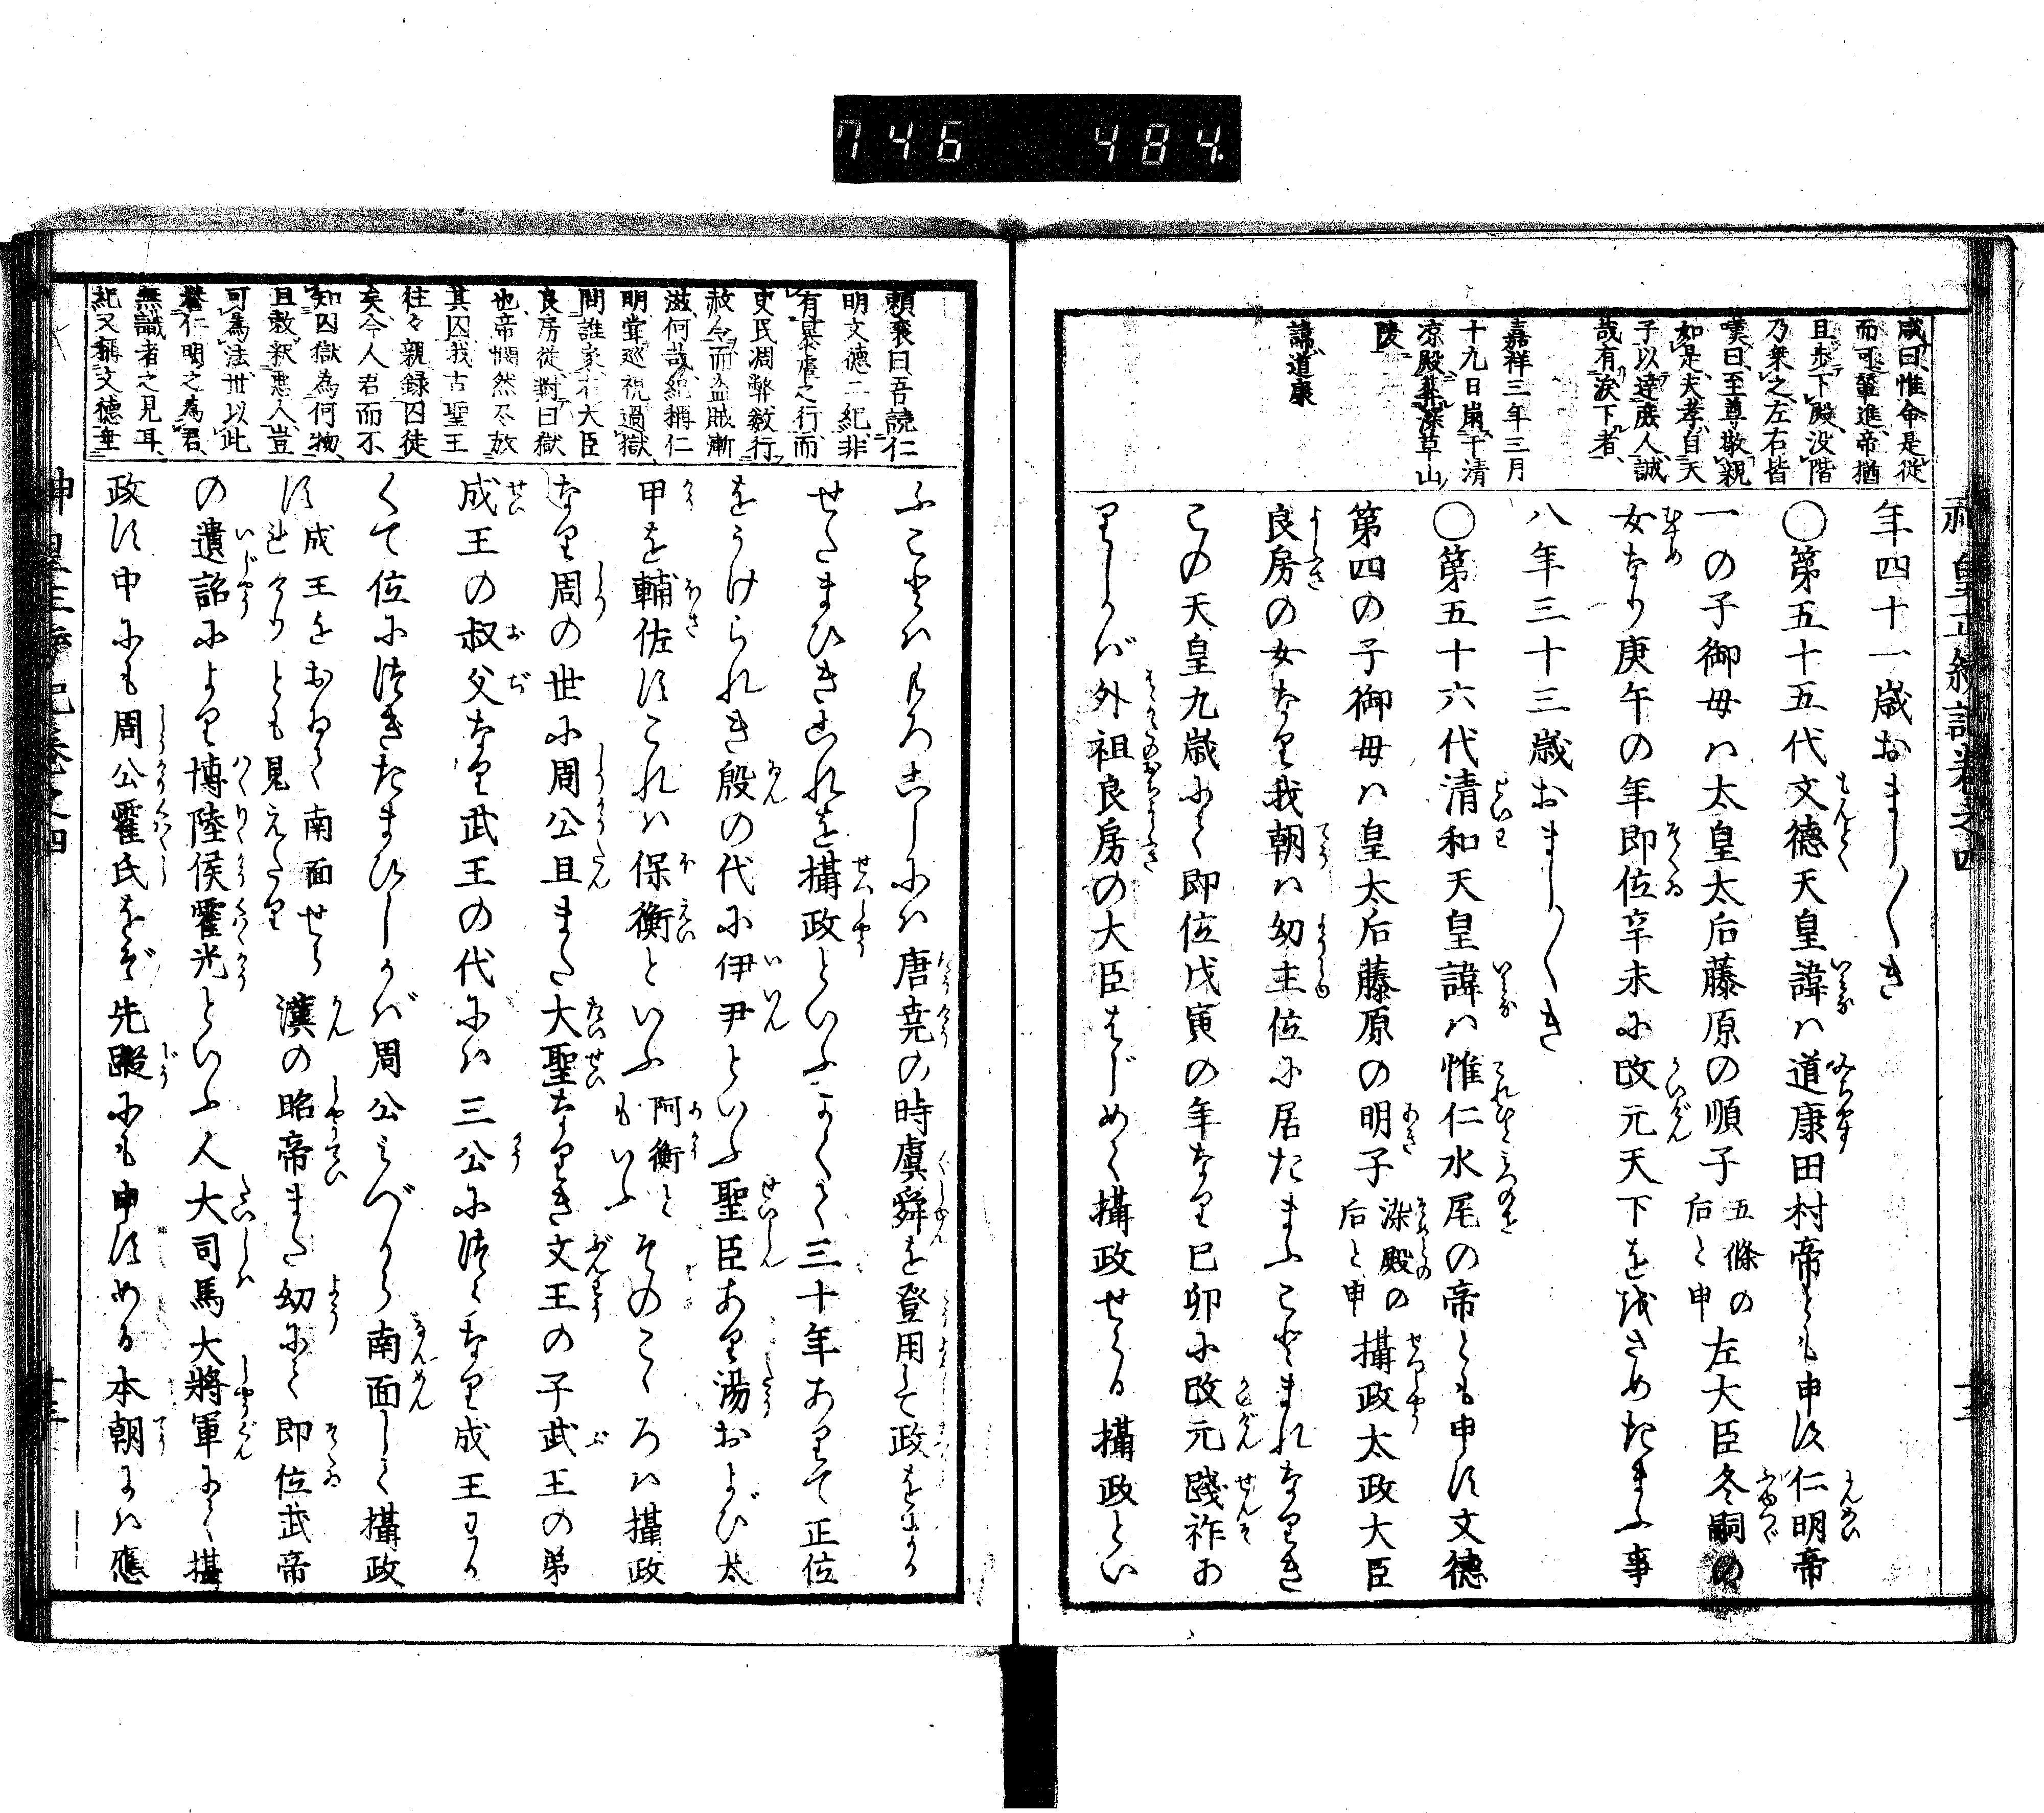 746 484.
咸曰、惟命是従
而可輦進、帝猶
且歩下殿、没階
乃乗之、左右皆
嘆曰、至尊敬親
如是、夫孝自天
子以達庶人、誠
哉有涙下者、
嘉祥三年三月
十九日崩于清
涼殿葬深草山
陵
諱道康
年四十一歳おまし〳〵き
〇第五十五代文德天皇諱ハ道康田村帝とも申す仁明帝
一の子御母ハ太皇太后藤原の順子五條の后と申左大臣冬嗣の
女なり庚午の年即位辛未に改元天下を治さめたまふ事
八年三十三歳おまし〳〵き
〇第五十六代清和天皇諱ハ惟仁水尾の帝とも申す文德
第四の子御母ハ皇太后藤原の明子染殿の后と申攝政太政大臣
良房の女なり我朝ハ幼主位に居たまふことまれなりき
この天皇九歳にて即位戊寅の年なり已卯に改元踐祚あ
りしかバ外祖良房の大臣はじめて攝政せらる攝政とい
神皇正統記卷之四
頼襄曰吾読仁
明文徳二紀非
有暴虐之行、而
吏民凋弊数行
赦令而盗賊漸
滋、何哉、紀稱仁
明嘗巡視過獄、
問誰家、右大臣
良房従、對曰獄
也、帝惻然尽放
其囚、我古聖王
往々親録囚徒
矣、今人君而不
知囚獄為何物、
且数釈悪人、豈
可為法、世以此
譽仁明之為君、
無識者之見耳、
紀又稱文徳垂
ふことハもろこしにハ唐尭の時虞舜を登用して政をまか
せたまひきこれを攝政といふかくて三十年ありて正位
をうけられき殷の代に伊尹といふ聖臣あり湯および太
甲を輔佐すこれハ保衡といふ阿衡ともいふそのこゝろハ攝政
なり周の世に周公旦また大聖なりき文王の子武王の弟
成王の叔父なり武王の代にハ三公につらなり成王わか
くて位につきたまひしかバ周公みづから南面して攝政
す成王をおゐて南面せられたりとも見えたり漢の昭帝また幼にて即位武帝
の遺詔により博陸侯霍光といふ人大司馬大將軍にて攝
政す中にも周公霍氏をぞ先蹤にも申すめる本朝にハ應